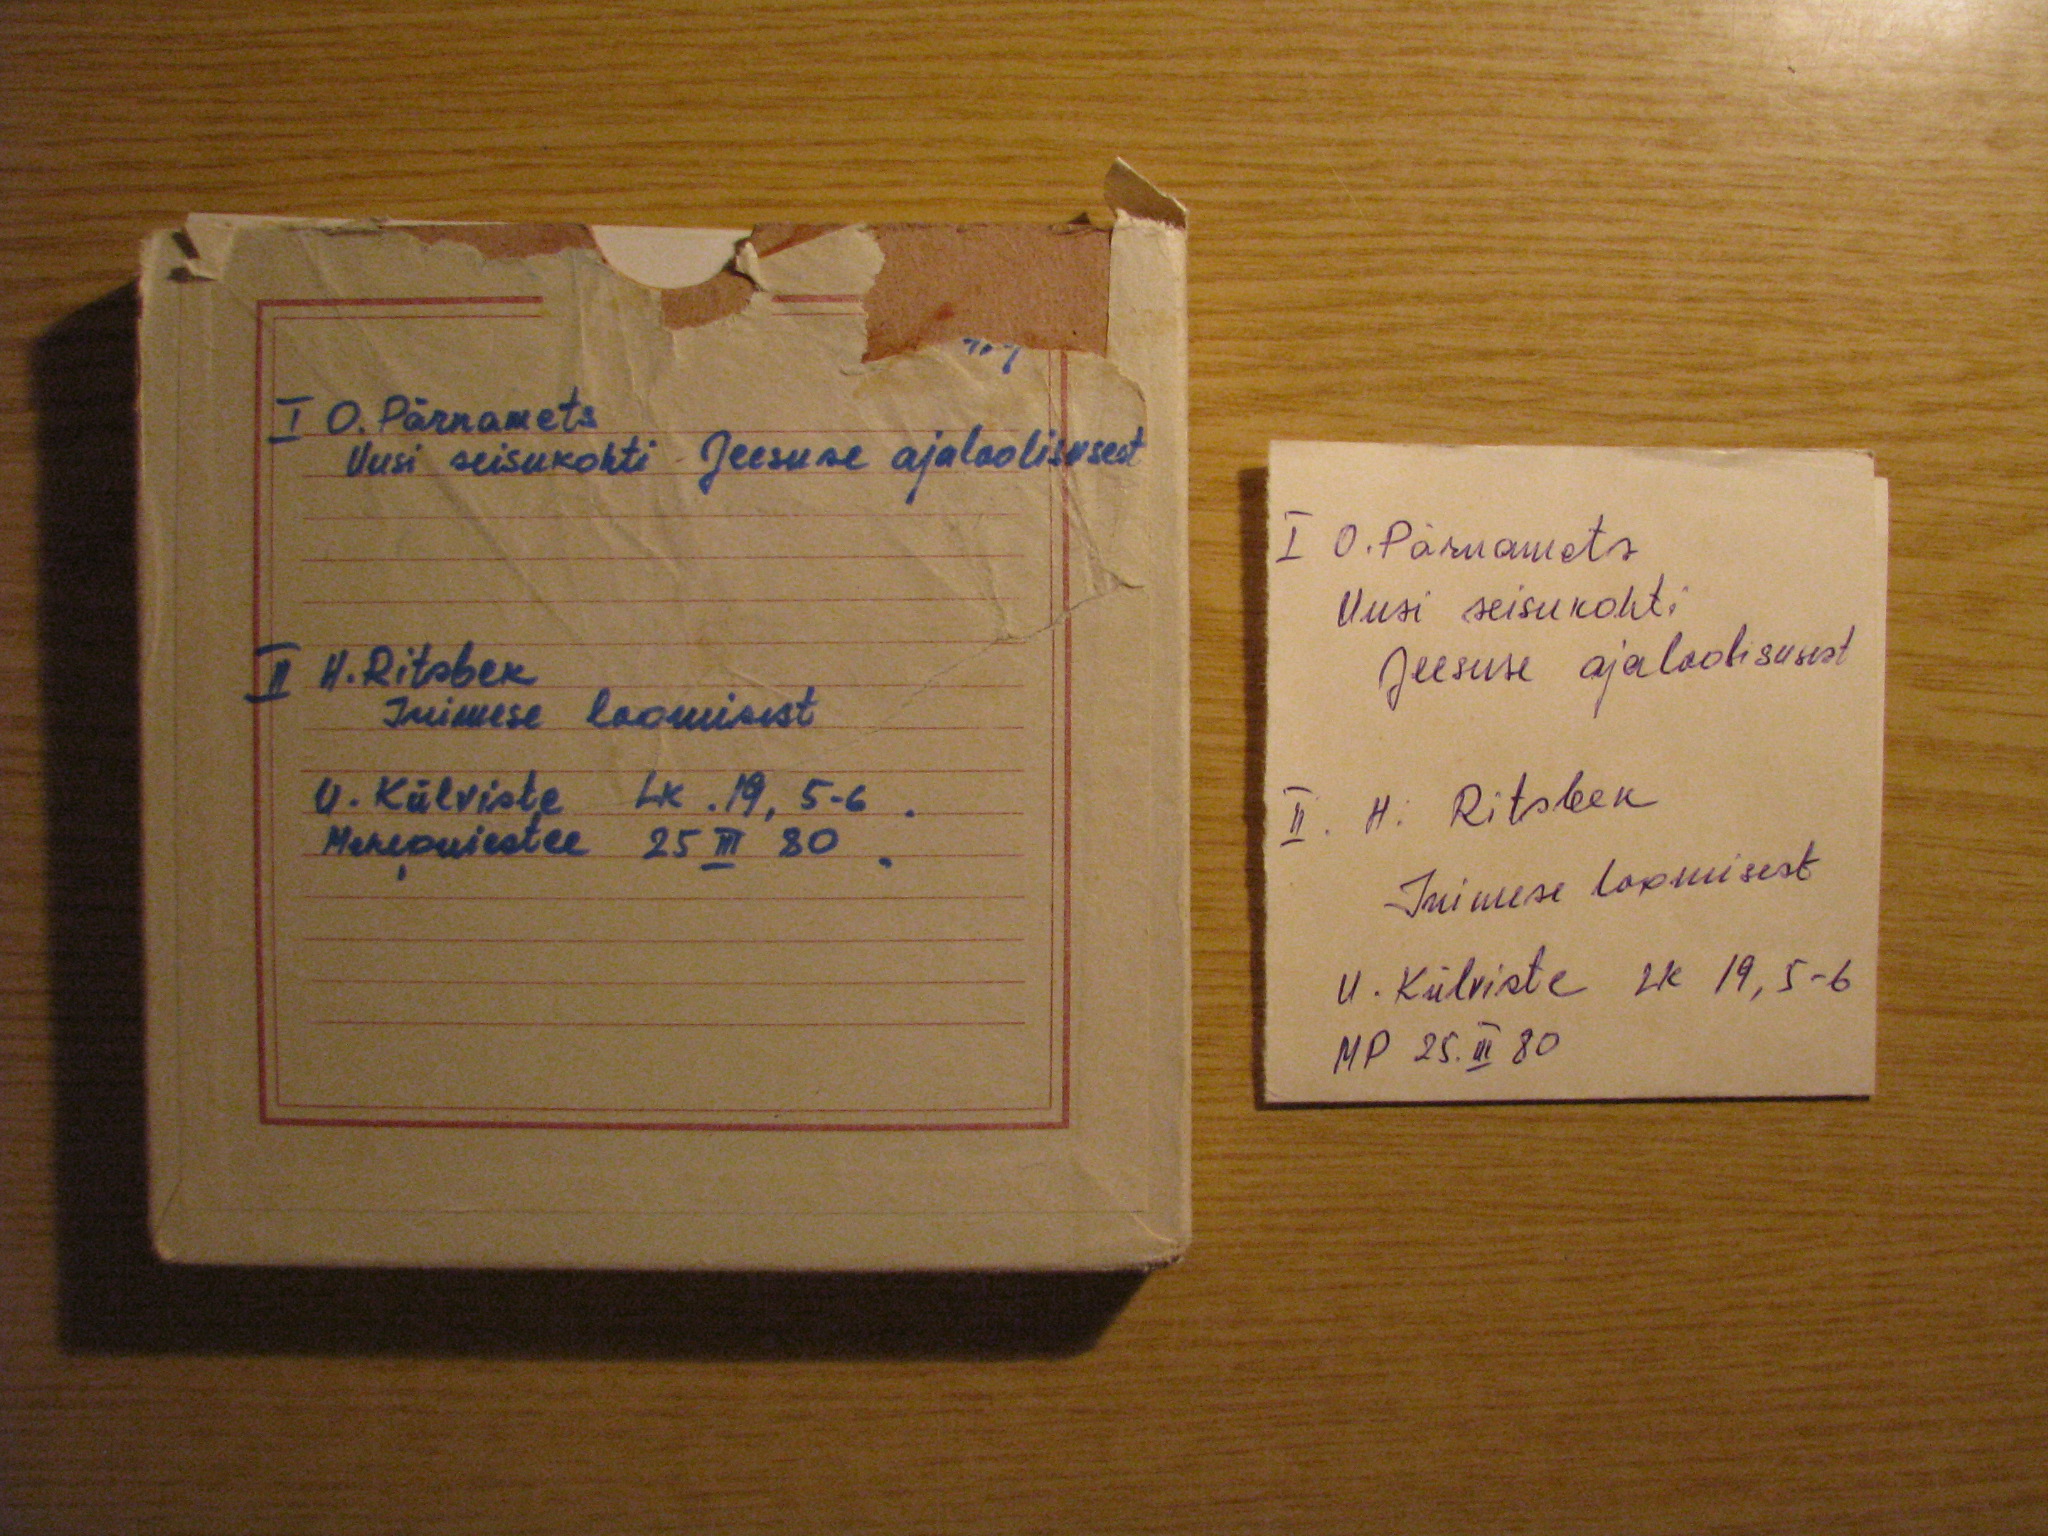 I O. Pärnamets
Uusi seisukohti Jeesuse ajaloolisusest
II H. Ritsbek
Inimese loomisest
U. Külviste Lk. 19, 5-6.
25 III 80.
I O. Pärnamets
Uusi seisukohti
Jeesuse ajaloolisusest
II. H. Ritsbek
Inimese loomisest
U. Külviste Lk 19, 5-6
MP 25. III 80